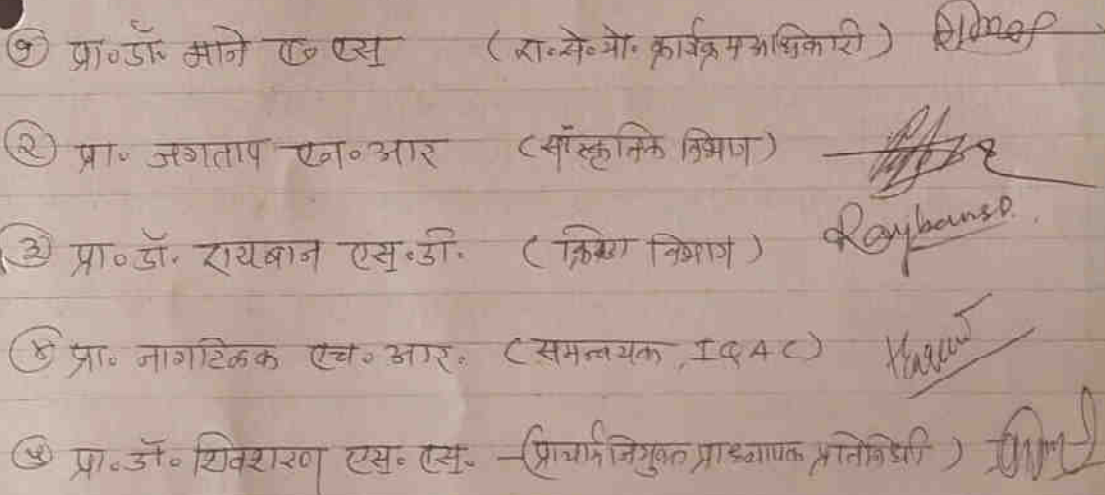 ① प्रा॰डॉ॰ माने ए॰ एस (रा॰से॰यो॰ कार्यक्रम अधिकारी)
② प्रा॰ जगताप एन॰आर (सांस्कृतिक विभाग)
③ प्रा॰डॉ॰ रायबान एस॰डी॰ (क्रिडा विभाग) Raybans.D.
④ प्रा॰ नागटिळक एच॰आर॰ (समन्वयक, IQAC)
⑤ प्रा॰डॉ॰ शिवशरण एस॰ एस॰ - (प्राचार्य नियुक्त प्राध्यापक प्रतिनिधी)